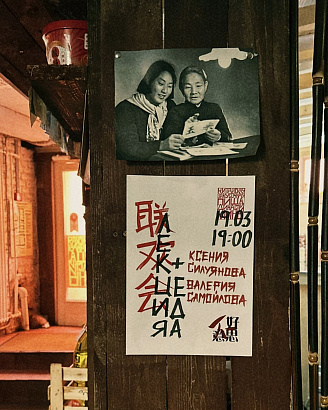 联欢会
ЛЕКЦИЯ
+ ЕДА
19.03
19:00
КСЕНИЯ
СИЛУЯНОВА
ВАЛЕРИЯ
САМОЙЛОВА